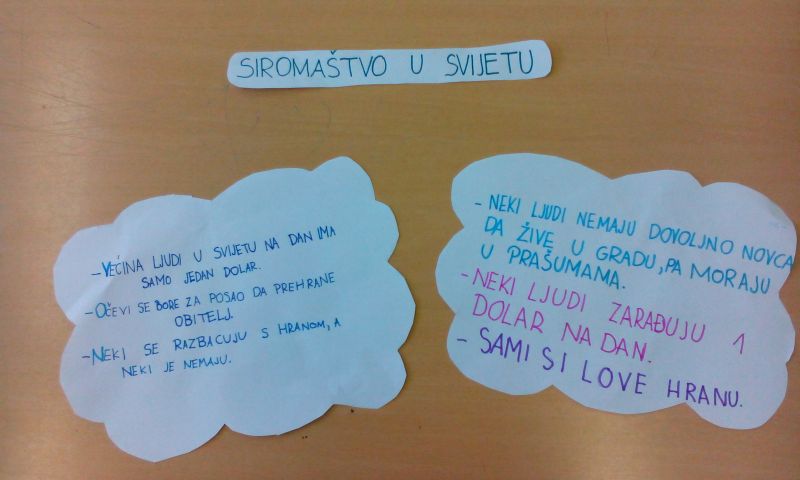 SIROMAŠTVO U SVIJETU
- VEĆINA LJUDI U SVIJETU NA DAN IMA
SAMO JEDAN DOLAR.
- OČEVI SE BORE ZA POSAO DA PREHRANE
OBITELJ.
- NEKI SE RAZBACUJU S HRANOM, A
NEKI JE NEMAJU.
- NEKI LJUDI NEMAJU DOVOLJNO NOVCA
DA ŽIVE U GRADU, PA MORAJU
U PRAŠUMAMA.
- NEKI LJUDI ZARAĐUJU 1
DOLAR NA DAN.
- SAMI SI LOVE HRANU.